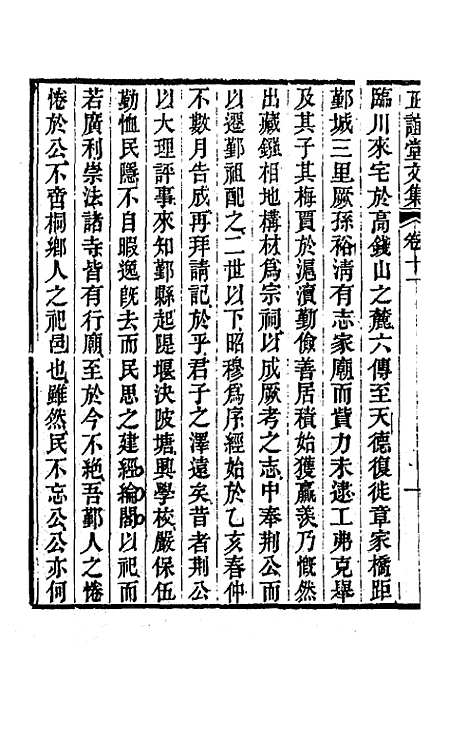 正誼堂文集 卷十一
臨川來宅於高錢山之麓六傳至天德復徙章家橋距
鄞城三里厥孫裕淸有志家廟而貲力未逮工弗克舉
及其子其梅賈於滬瀆勤儉善居積始獲贏羨乃慨然
出藏鏹相地構材爲宗祠以成厥考之志中奉荆公而
以遷鄞祖配之二世以下昭穆爲序經始於乙亥春仲
不數月告成再拜請記於乎君子之澤遠矣昔者荆公
以大理評事來知鄞縣起隄堰決陂塘興學校嚴保伍
勤恤民隱不自暇逸旣去而民思之建經綸閣以祀而
若廣利崇法諸寺皆有行廟至於今不絶吾鄞人之惓
惓於公不啻桐鄉人之祀邑也雖然民不忘公公亦何